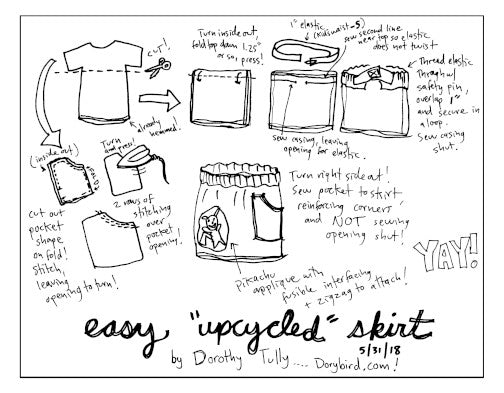 CUT!
already
hemmed!
Turn inside out,
fold top down 1.25"
or so, press!
1" elastic
(kids waist -.5)
sew second line
near top so elastic
does not twist
sew casing, leaving
opening for elastic.
Thread elastic
through w/
safety pin,
overlap 1"
and secure in
a loop.
Sew casing
shut.
(inside out)
FOLD
cut out
pocket
shape
on fold!
Stitch,
leaving
opening to turn!
Turn
and press!
2 rows of
stitching
over
pocket
opening.
Turn right side out!
Sew pocket to skirt
reinforcing corners,
and NOT sewing
opening shut!
Pikachu
applique with
fusible interfacing
+ zigzag to attach!
YAY!
easy "upcycled" skirt
5/31/18
by Dorothy Tully.... Dorybird.com!